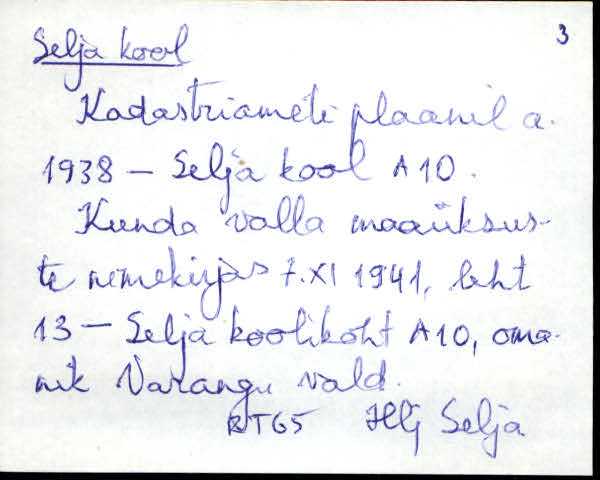 3
Selja kool
Kadastriameti plaanil a.
1938 — Selja kool A10.
Kunda valla maaüksus-
te nimekirjas 7.XI 1941, leht
13 — Selja koolikoht A10, oma-
nik Varangu vald.
RTG5 Hlj Selja